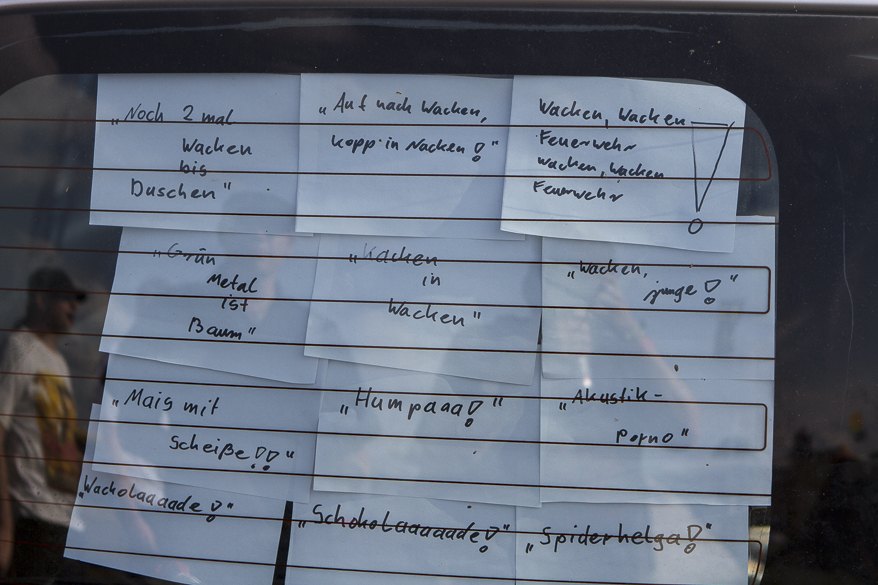 „Noch 2 mal
Wacken
bis
Duschen"
„Auf nach Wacken,
kopp in Nacken!"
Wacken, Wacken
Feuerwehr
wacken, wacken
Feuerwehr!
„Grün
Metal
ist
Baum"
„Kacken
in
Wacken"
„Wacken,
junge!"
„Mais mit
Scheiße!!"
„Humpaaa!"
„Akustik-
Porno"
„Wacholaaaade!"
„Schokolaaaaade!"
„Spiderhelga!"